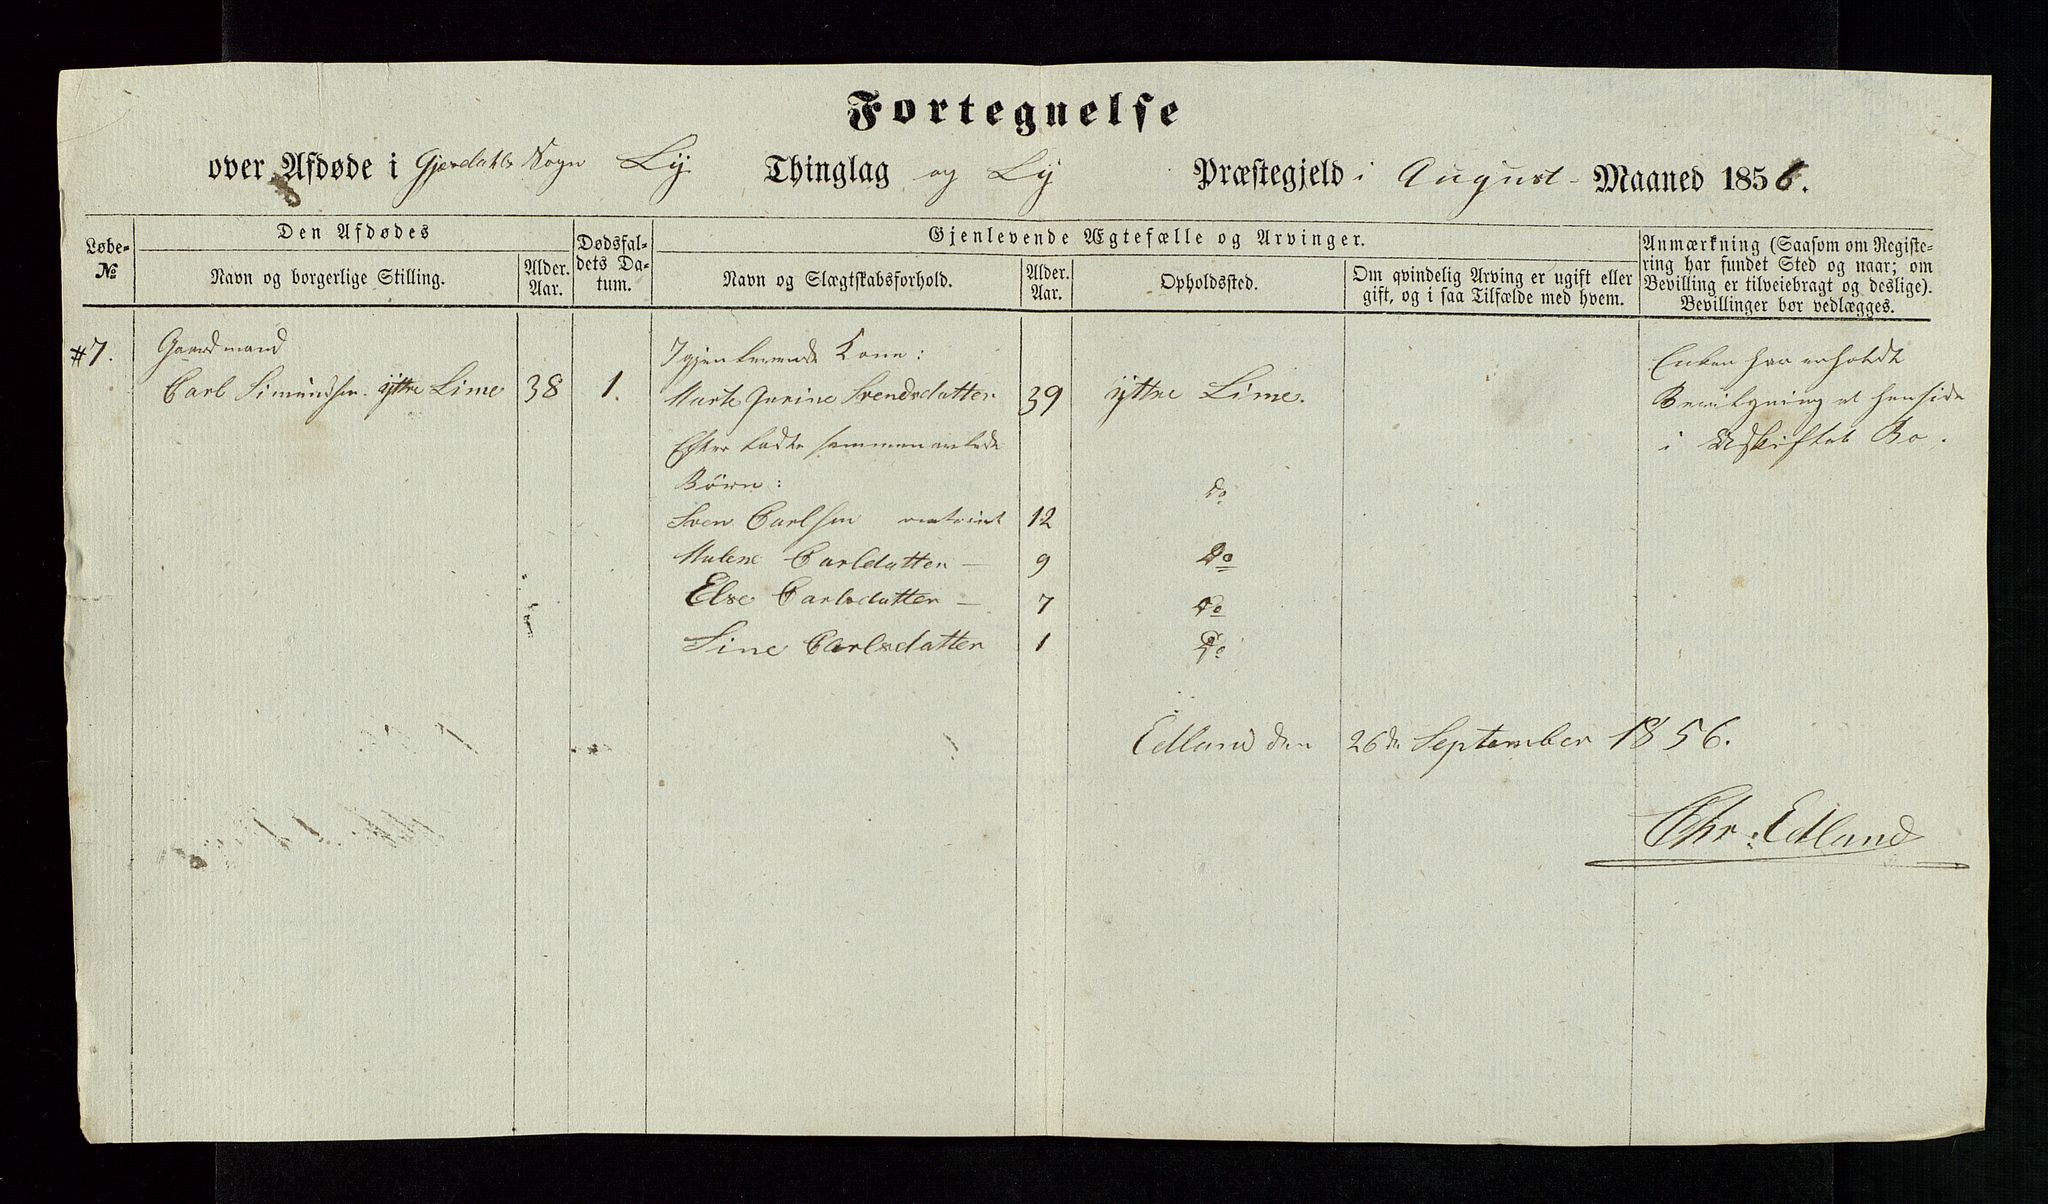 Fortegnelse
over Afdøde i Gjesdahls Sogn Ly Thinglag og Ly Præstegjeld i August Maaned 1856.
Løbe-
No
Den Afdødes
Navn og borgerlige Stilling.
Alder.
Aar.
Dødsfal-
dets Da-
tum.
Gjenlevende Ægtefælle og Arvinger.
Navn og Slægtskabsforhold.
Alder.
Aar.
Opholdssted.
Om qvindelig Arving er ugift eller
gift, og i saa Tilfælde med hvem.
Anmærkning (Saasom om Registe-
ring har fundet Sted og naar; om
Bevilling er tilveiebragt og deslige).
Bevillinger bør vedlægges.
#7. Gaardmand Igjenlevende Kone: Enken har erholdt
Carl Simundsen ÿttre Lime 38 1. Marte Gurine Svendsdatter 39 ÿttre Lime. Bevilgning at hensidde
i Uskiftet Bo.
Efterladte sammenavlede
Børn:
Sven Carlsen 12 do
Malene Carlsdatter — 9 Do
Else Carlsdatter — 7 Do
Sine Carlsdatter 1 Do
Edland den 26de September 1856.
Chr. Edland